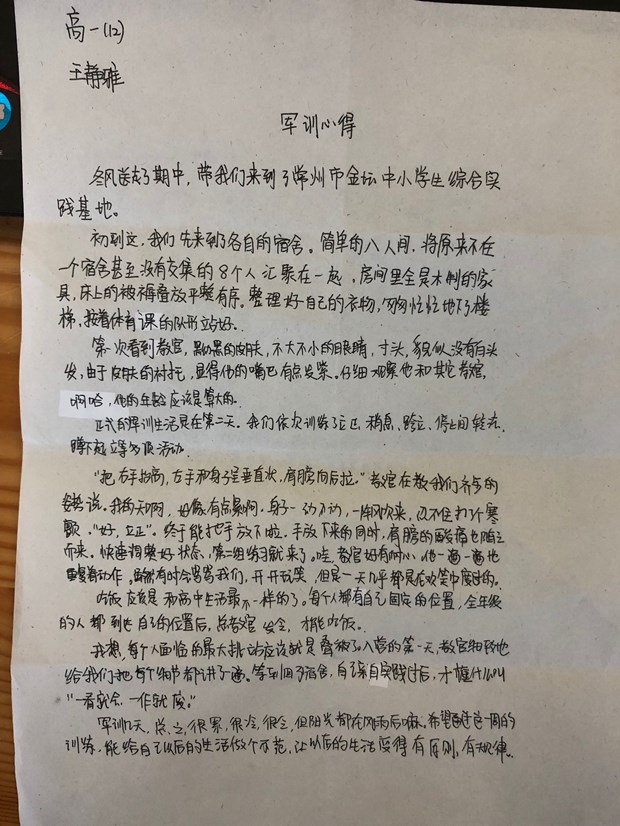 高一(12)
王静雅
军训心得
冬风送走了期中，带我们来到了常州市金坛中小学生综合实
践基地。
初到这，我们先来到了各自的宿舍。简单的八人间，将原来不在
一个宿舍甚至没有交集的8个人汇聚在一起，房间里全是木制的家
具，床上的被褥叠放平整有序。整理好自己的衣物，匆匆忙忙地下了楼
梯，按着体育课的队形站好。
第一次看到教官，黝黑的皮肤，不大不小的眼睛，寸头，貌似没有白头
发，由于皮肤的衬托，显得他的嘴巴有点发紫。仔细观察他和其它教官，
啊哈，他的年龄应该是算大的。
正式的军训生活是在第二天。我们依次训练了立正、稍息、跨立、停止间转法、
蹲下起立等多项活动。
“把右手抬高，左手和身子呈垂直状，肩膀向后拉。”教官在教我们齐步的
姿势说。我的天啊，好像有点累啊。身子一动不动，一阵风吹来，忍不住打个寒
颤。“好，立正”。终于能把手放下啦。手放下来的同时，肩膀的酸痛也随之
而来。快速调整好状态，第二组练习就来了。哇，教官好有耐心，他一遍一遍地
重复着动作。虽然有时会骂骂我们，开开玩笑，但是一天几乎都是在欢笑中度过的。
吃饭应该是和高中生活最不一样的了。每个人都有自己固定的位置，全年级
的人都到达自己的位置后，总教官发令，才能吃饭。
我想，每个人面临的最大挑战应该就是叠被子了。入营的第一天，教官细致地
给我们把每个细节都讲了一遍。等到回了宿舍，自己亲自实践过后，才懂什么叫
“一看就会，一作就废。”
军训几天，总之，很累，很冷，很，但阳光都在风雨后嘛。希望通过这一周的
训练，能给自己以后的生活做个示范，让以后的生活变得有原则，有规律。